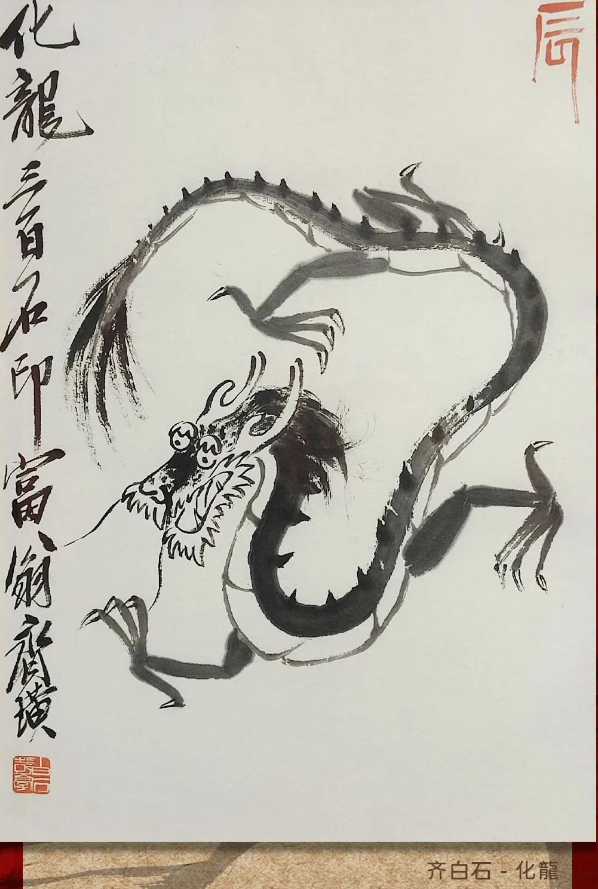 辰
化龍三百石印富翁齊璜
齐白石 - 化龍